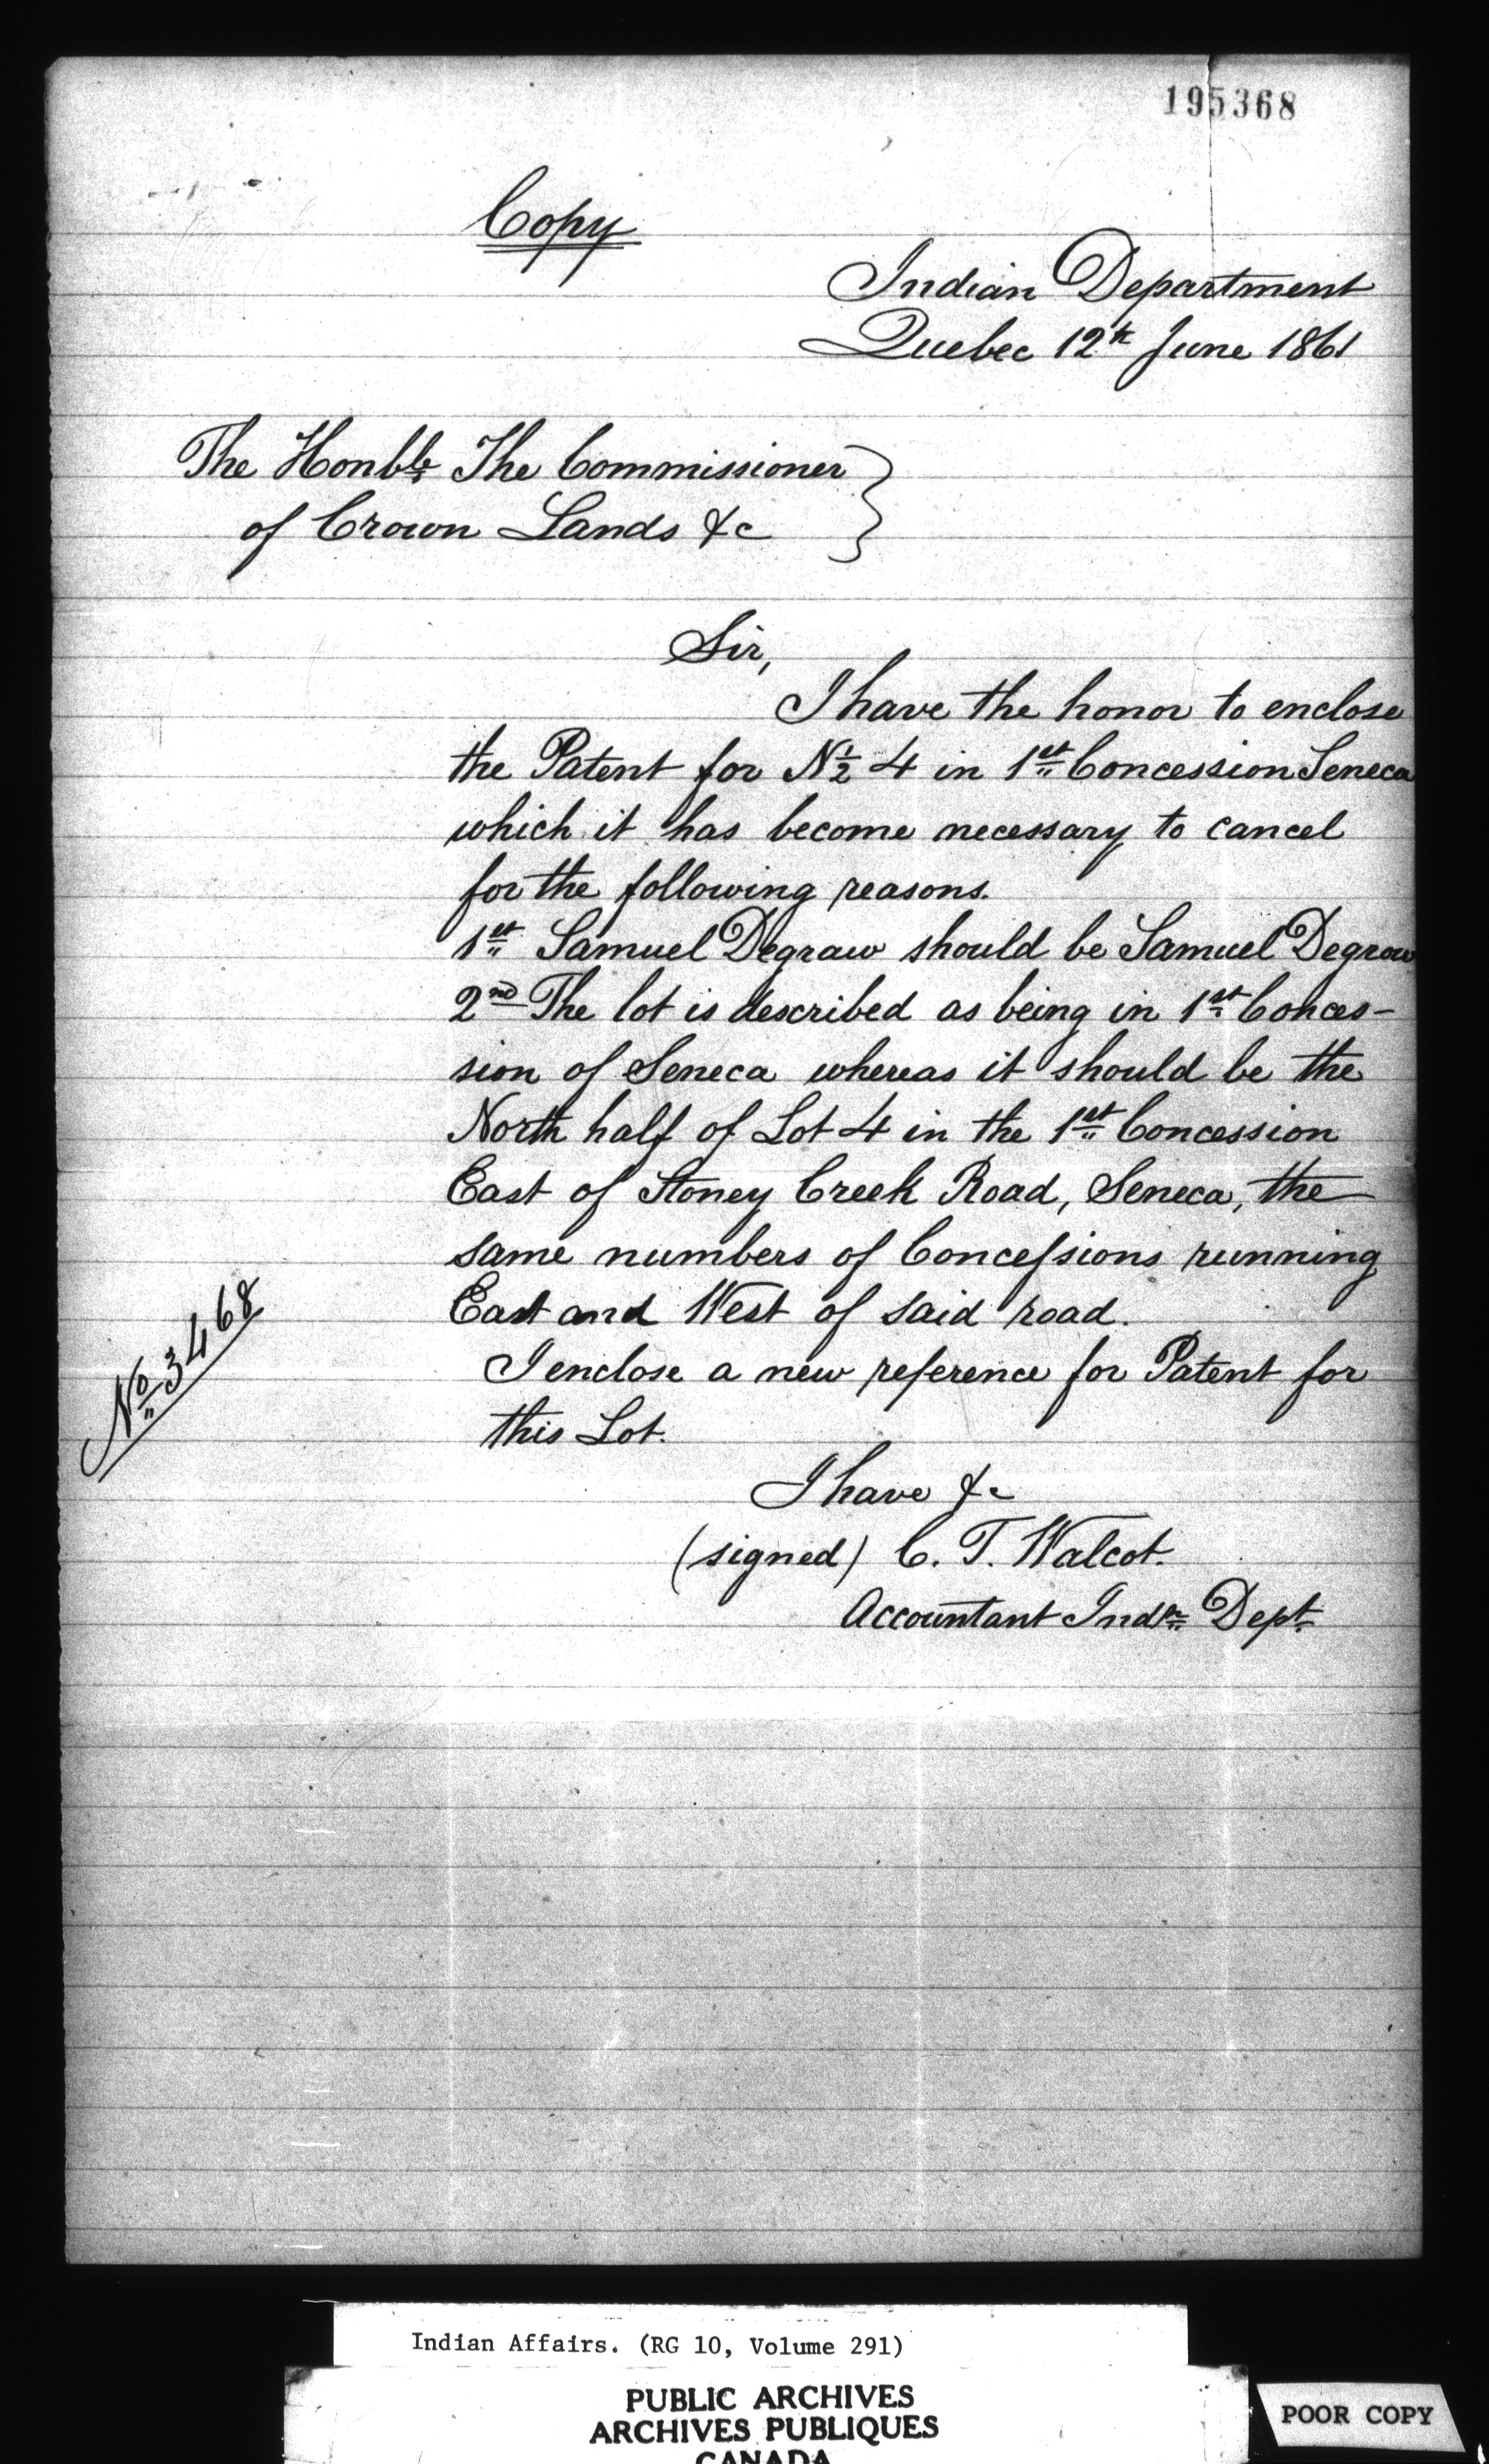 195368
Copy
Indian Department
Quebec 12th June 1861
The Honble The Commissioner
of Crown Lands &c
Sir,
I have the honor to enclose
the Patent for N½ 4 in 1st Concession Seneca
which it has become necessary to cancel
for the following reasons.
1st Samuel Degraw should be Samuel Degrow
2nd The lot is described as being in 1st Conces-
sion of Seneca whereas it should be the
North half of Lot 4 in the 1st Concession
East of Stoney Creek Road, Seneca, the
same numbers of Concessions running
East and West of said road.
I enclose a new reference for Patent for
this Lot.
No 3468
I have &c
(signed) C. T. Walcot.
Accountant Indn Dept.
Indian Affairs. (RG 10, Volume 291)
PUBLIC ARCHIVES
ARCHIVES PUBLIQUES
CANADA
POOR COPY